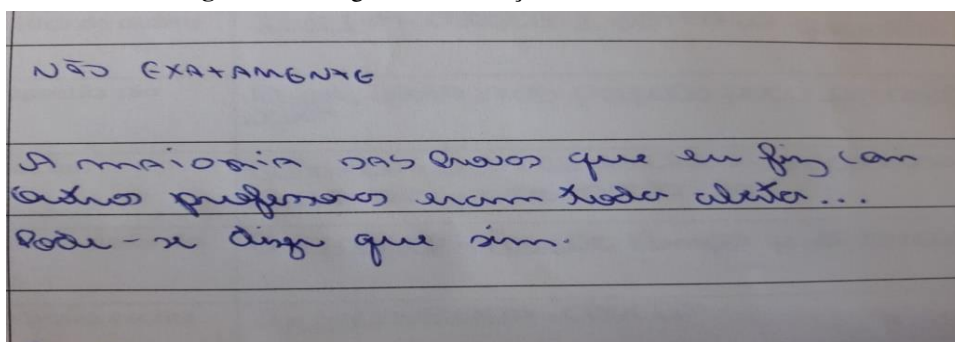 NÃO EXATAMENTE
A MAIORIA DAS Provas que eu fiz com
outros professores eram toda aberta...
Pode-se dizer que sim.